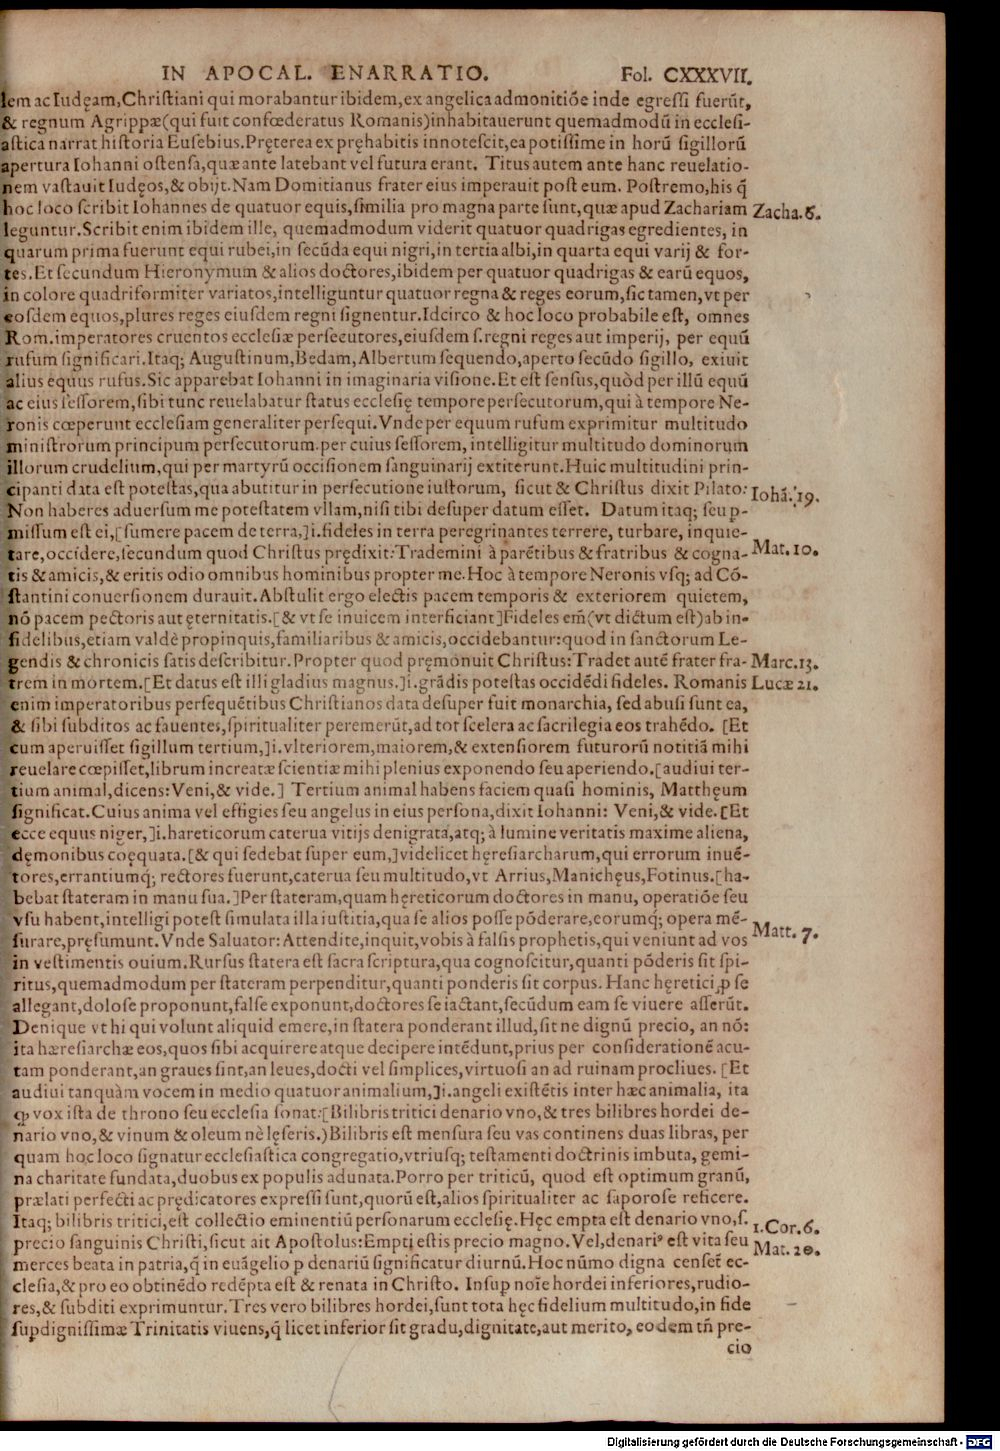 IN APOCAL. ENARRATIO. Fol. CXXXVII.
lem ac Iudęam, Christiani qui morabantur ibidem, ex angelica admonitiōe inde egressi fuerūt,
& regnum Agrippæ (qui fuit confœderatus Romanis) inhabitauerunt quemadmodū in ecclesi-
astica narrat historia Eusebius. Pręterea ex pręhabitis innotescit, ea potissime in horū sigillorū
apertura Iohanni ostensa, quæ ante latebant vel futura erant. Titus autem ante hanc reuelatio-
nem vastauit Iudęos, & obijt. Nam Domitianus frater eius imperauit post eum. Postremo, his q̄
hoc loco scribit Iohannes de quatuor equis, similia pro magna parte sunt, quæ apud Zachariam Zacha. 6.
leguntur. Scribit enim ibidem ille, quemadmodum viderit quatuor quadrigas egredientes, in
quarum prima fuerunt equi rubei, in secūda equi nigri, in tertia albi, in quarta equi varij & for-
tes. Et secundum Hieronymum & alios doctores, ibidem per quatuor quadrigas & earū equos,
in colore quadriformiter variatos, intelliguntur quatuor regna & reges eorum, sic tamen, vt per
eosdem equos, plures reges eiusdem regni signentur. Idcirco & hoc loco probabile est, omnes
Rom. imperatores cruentos ecclesiæ persecutores, eiusdem s. regni reges aut imperij, per equū
rufum significari. Itaq; Augustinum, Bedam, Albertum sequendo, aperto secūdo sigillo, exiuit
alius equus rufus. Sic apparebat Iohanni in imaginaria visione. Et est sensus, quòd per illū equū
ac eius sessorem, sibi tunc reuelabatur status ecclesię tempore persecutorum, qui à tempore Ne-
ronis cœperunt ecclesiam generaliter persequi. Vnde per equum rufum exprimitur multitudo
ministrorum principum persecutorum. per cuius sessorem, intelligitur multitudo dominorum
illorum crudelium, qui per martyrū occisionem sanguinarij extiterunt. Huic multitudini prin-
cipanti data est potestas, qua abutitur in persecutione iustorum, sicut & Christus dixit Pilato: Iohā. 19.
Non haberes aduersum me potestatem vllam, nisi tibi desuper datum esset. Datum itaq; seu p-
missum est ei, [sumere pacem de terra,] i. fideles in terra peregrinantes terrere, turbare, inquie-
tare, occidere, secundum quod Christus prędixit: Trademini à parētibus & fratribus & cogna- Mat. 10.
tis & amicis, & eritis odio omnibus hominibus propter me. Hoc à tempore Neronis vsq; ad Cō-
stantini conuersionem durauit. Abstulit ergo electis pacem temporis & exteriorem quietem,
nō pacem pectoris aut ęternitatis. [& vt se inuicem interficiant] Fideles em̄ (vt dictum est) ab in-
fidelibus, etiam valdè propinquis, familiaribus & amicis, occidebantur: quod in sanctorum Le-
gendis & chronicis satis describitur. Propter quod pręmonuit Christus: Tradet autē frater fra- Marc. 13.
trem in mortem. [Et datus est illi gladius magnus.] i. grādis potestas occidēdi fideles. Romanis Lucæ 21.
enim imperatoribus persequētibus Christianos data desuper fuit monarchia, sed abusi sunt ea,
& sibi subditos ac fauentes, spiritualiter peremerūt, ad tot scelera ac sacrilegia eos trahēdo. [Et
cum aperuisset sigillum tertium,] i. vlteriorem, maiorem, & extensiorem futurorū notitiā mihi
reuelare cœpisset, librum increatæ scientiæ mihi plenius exponendo seu aperiendo. [audiui ter-
tium animal, dicens: Veni, & vide.] Tertium animal habens faciem quasi hominis, Matthęum
significat. Cuius anima vel effigies seu angelus in eius persona, dixit Iohanni: Veni, & vide. [Et
ecce equus niger,] i. hareticorum caterua vitijs denigrata, atq; à lumine veritatis maxime aliena,
dęmonibus coęquata. [& qui sedebat super eum,] videlicet hęresiarcharum, qui errorum inuē-
tores, errantiumq; rectores fuerunt, caterua seu multitudo, vt Arrius, Manichęus, Fotinus. [ha-
bebat stateram in manu sua.] Per stateram, quam hęreticorum doctores in manu, operatiōe seu
vsu habent, intelligi potest simulata illa iustitia, qua se alios posse pōderare, eorumq; opera mē-
surare, pręsumunt. Vnde Saluator: Attendite, inquit, vobis à falsis prophetis, qui veniunt ad vos Matt. 7.
in vestimentis ouium. Rursus statera est sacra scriptura, qua cognoscitur, quanti pōderis sit spi-
ritus, quemadmodum per stateram perpenditur, quanti ponderis sit corpus. Hanc hęretici, p se
allegant, dolose proponunt, false exponunt, doctores se iactant, secūdum eam se viuere asserūt.
Denique vt hi qui volunt aliquid emere, in statera ponderant illud, sit ne dignū precio, an nō:
ita hæresiarchæ eos, quos sibi acquirere atque decipere intēdunt, prius per considerationē acu-
tam ponderant, an graues sint, an leues, docti vel simplices, virtuosi an ad ruinam procliues. [Et
audiui tanquàm vocem in medio quatuor animalium,] i. angeli existētis inter hæc animalia, ita
ꝙ vox ista de throno seu ecclesia sonat: [Bilibris tritici denario vno, & tres bilibres hordei de-
nario vno, & vinum & oleum nè lęseris.) Bilibris est mensura seu vas continens duas libras, per
quam hoc loco signatur ecclesiastica congregatio, vtriusq; testamenti doctrinis imbuta, gemi-
na charitate fundata, duobus ex populis adunata. Porro per triticū, quod est optimum granū,
prælati perfecti ac prędicatores expressi sunt, quorū est, alios spiritualiter ac saporose reficere.
Itaq; bilibris tritici, est collectio eminentiū personarum ecclesię. Hęc empta est denario vno, s. 1. Cor. 6.
precio sanguinis Christi, sicut ait Apostolus: Empti estis precio magno. Vel, denari⁹ est vita seu Mat. 20.
merces beata in patria, q̄ in euāgelio p denariū significatur diurnū. Hoc nūmo digna censet̃ ec-
clesia, & pro eo obtinēdo redēpta est & renata in Christo. Insup noīe hordei inferiores, rudio-
res, & subditi exprimuntur. Tres vero bilibres hordei, sunt tota hęc fidelium multitudo, in fide
supdignissimæ Trinitatis viuens, q̄ licet inferior sit gradu, dignitate, aut merito, eodem tñ pre-
cio
Digitalisierung gefördert durch die Deutsche Forschungsgemeinschaft - DFG